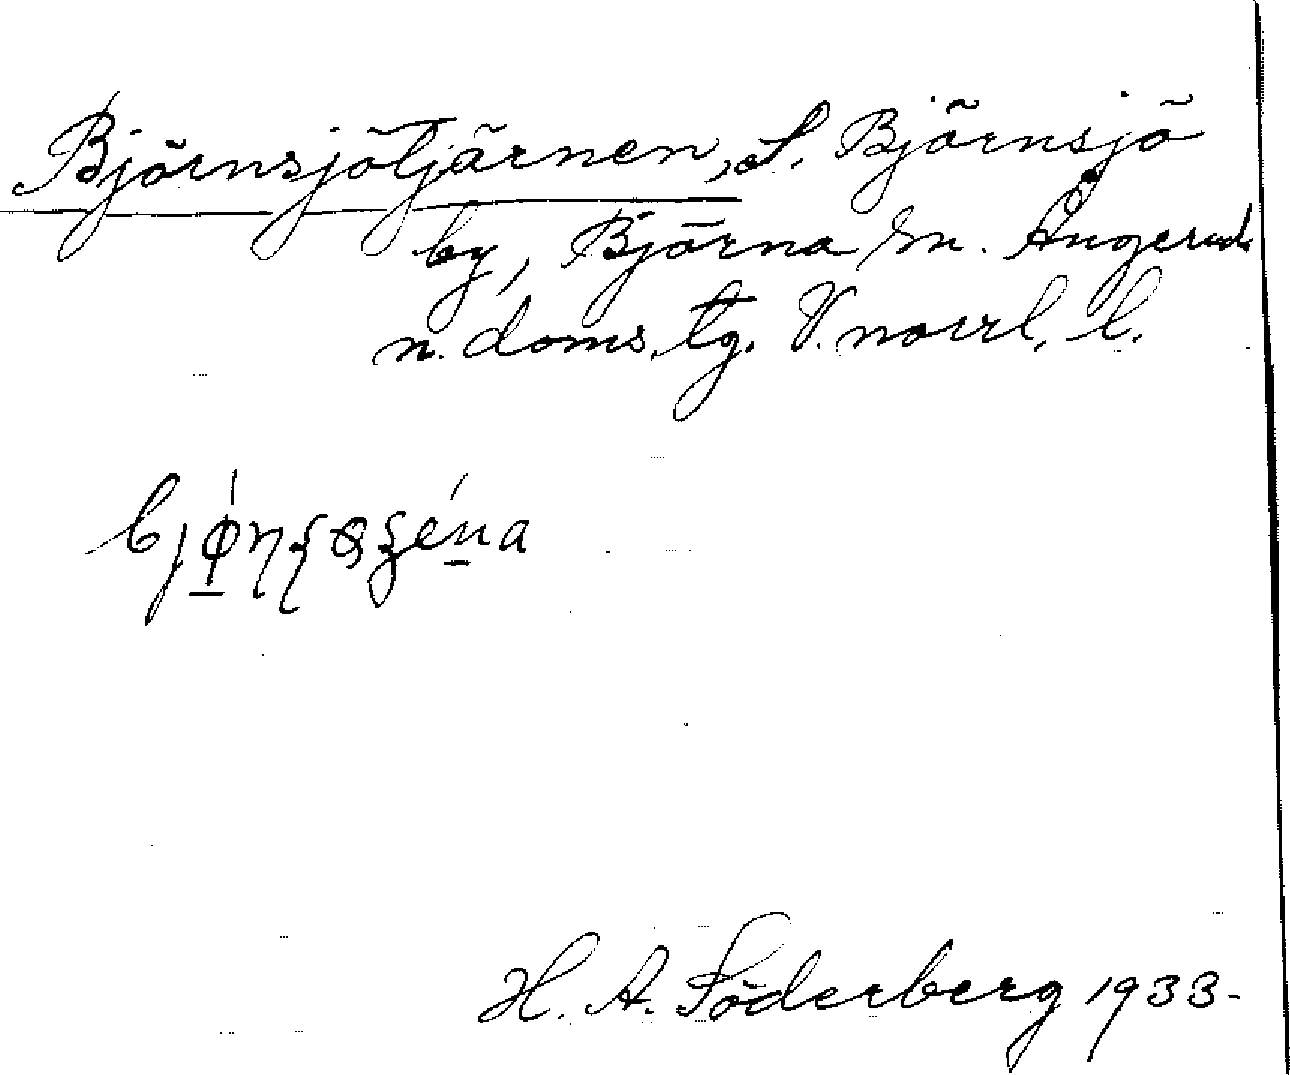 Björnsjötjärnen, S. Björnsjö
by, Björna sn. Ångerm.
n. doms. tg. V. norrl. l.
H. A. Söderberg 1933-